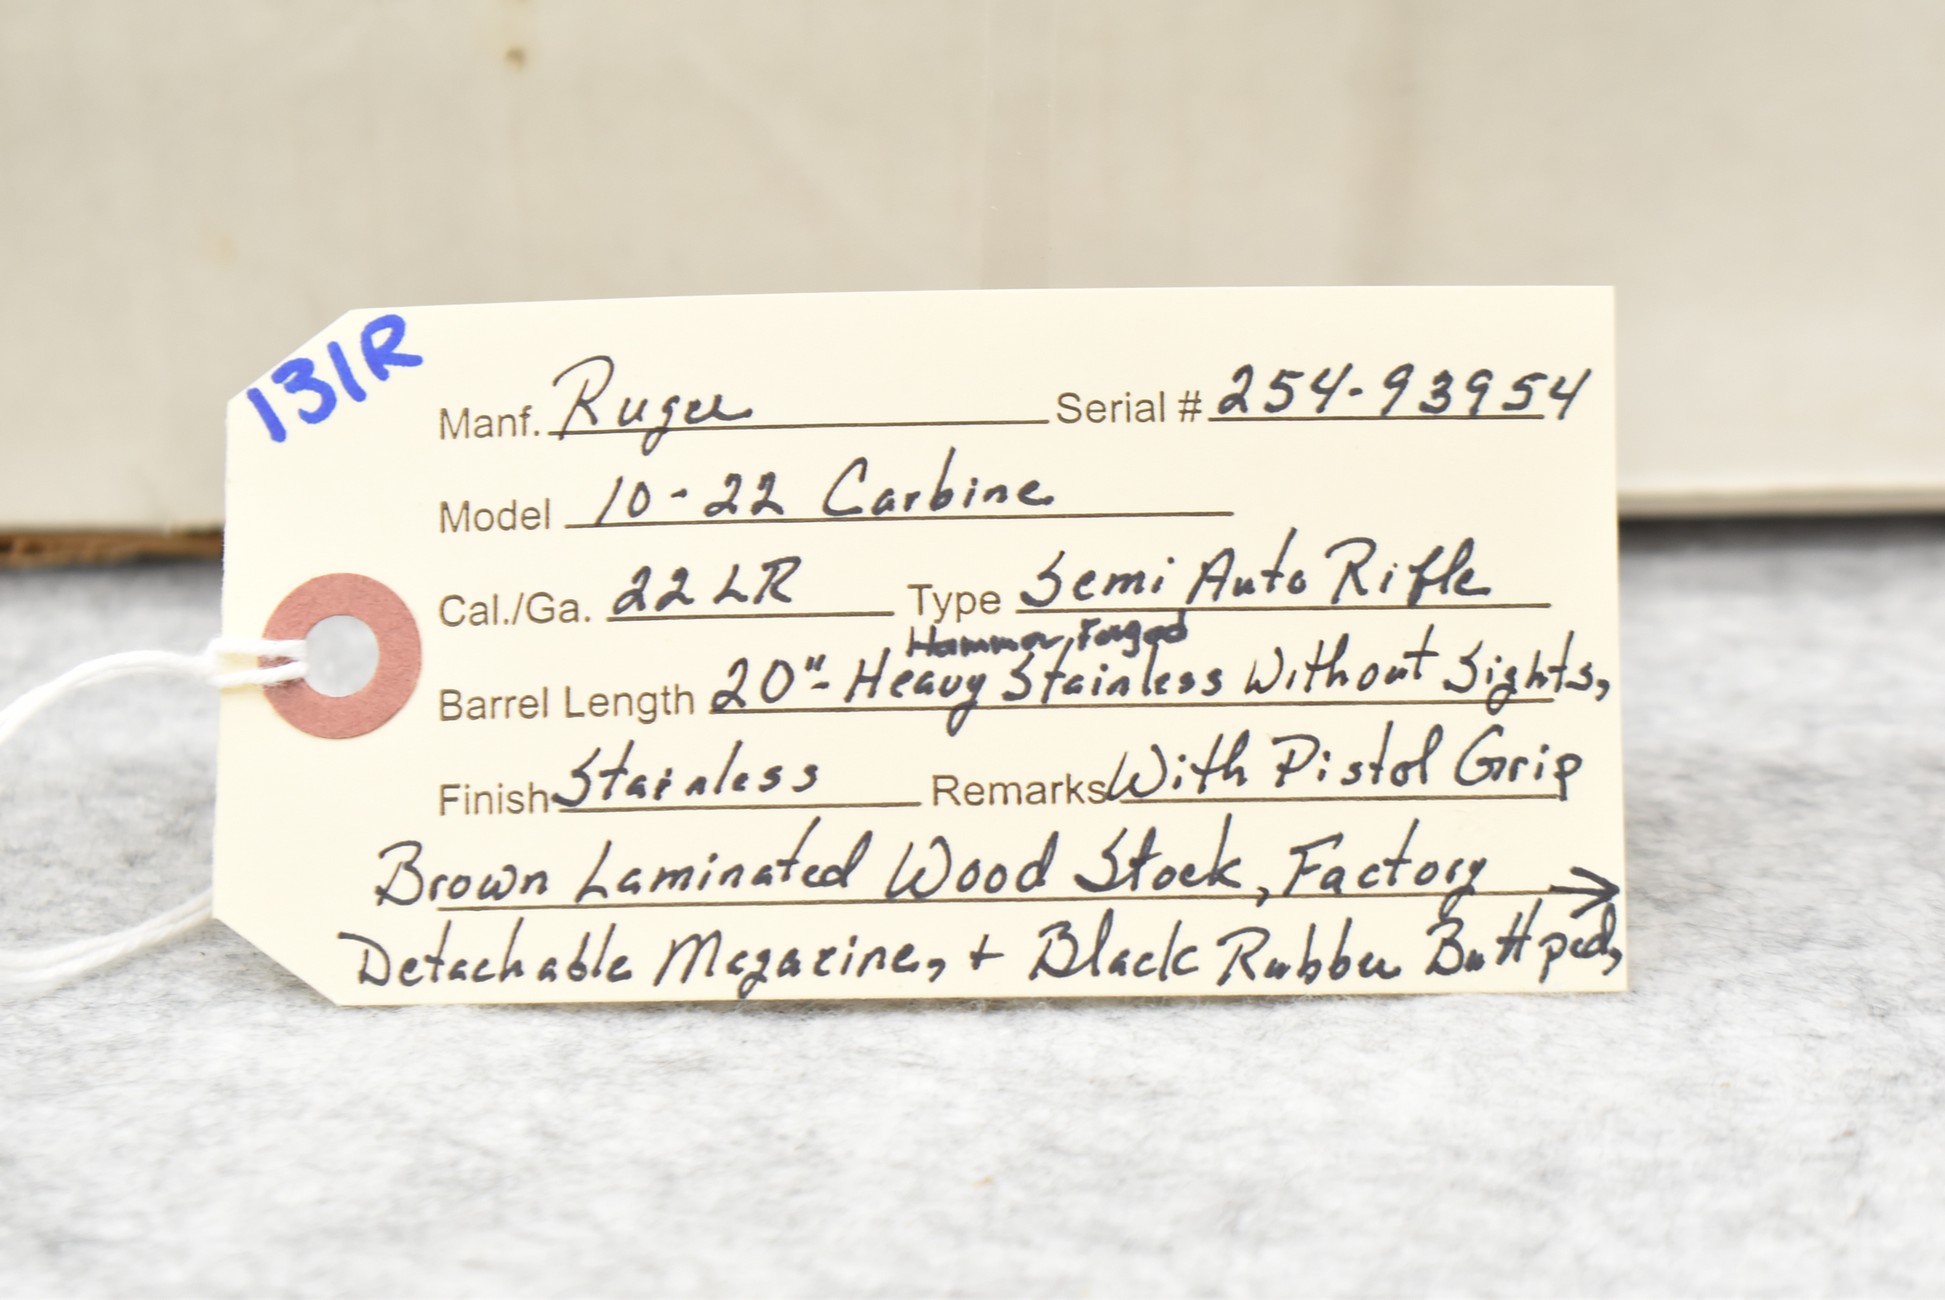 131R
Manf. Ruger Serial # 254-93954
Model 10-22 Carbine
Cal./Ga. 22 LR Type Semi Auto Rifle
Hammer Forged
Barrel Length 20"- Heavy Stainless Without Sights,
Finish Stainless Remarks With Pistol Grip
Brown Laminated Wood Stock, Factory →
Detachable Magazine, + Black Rubber Buttpad,